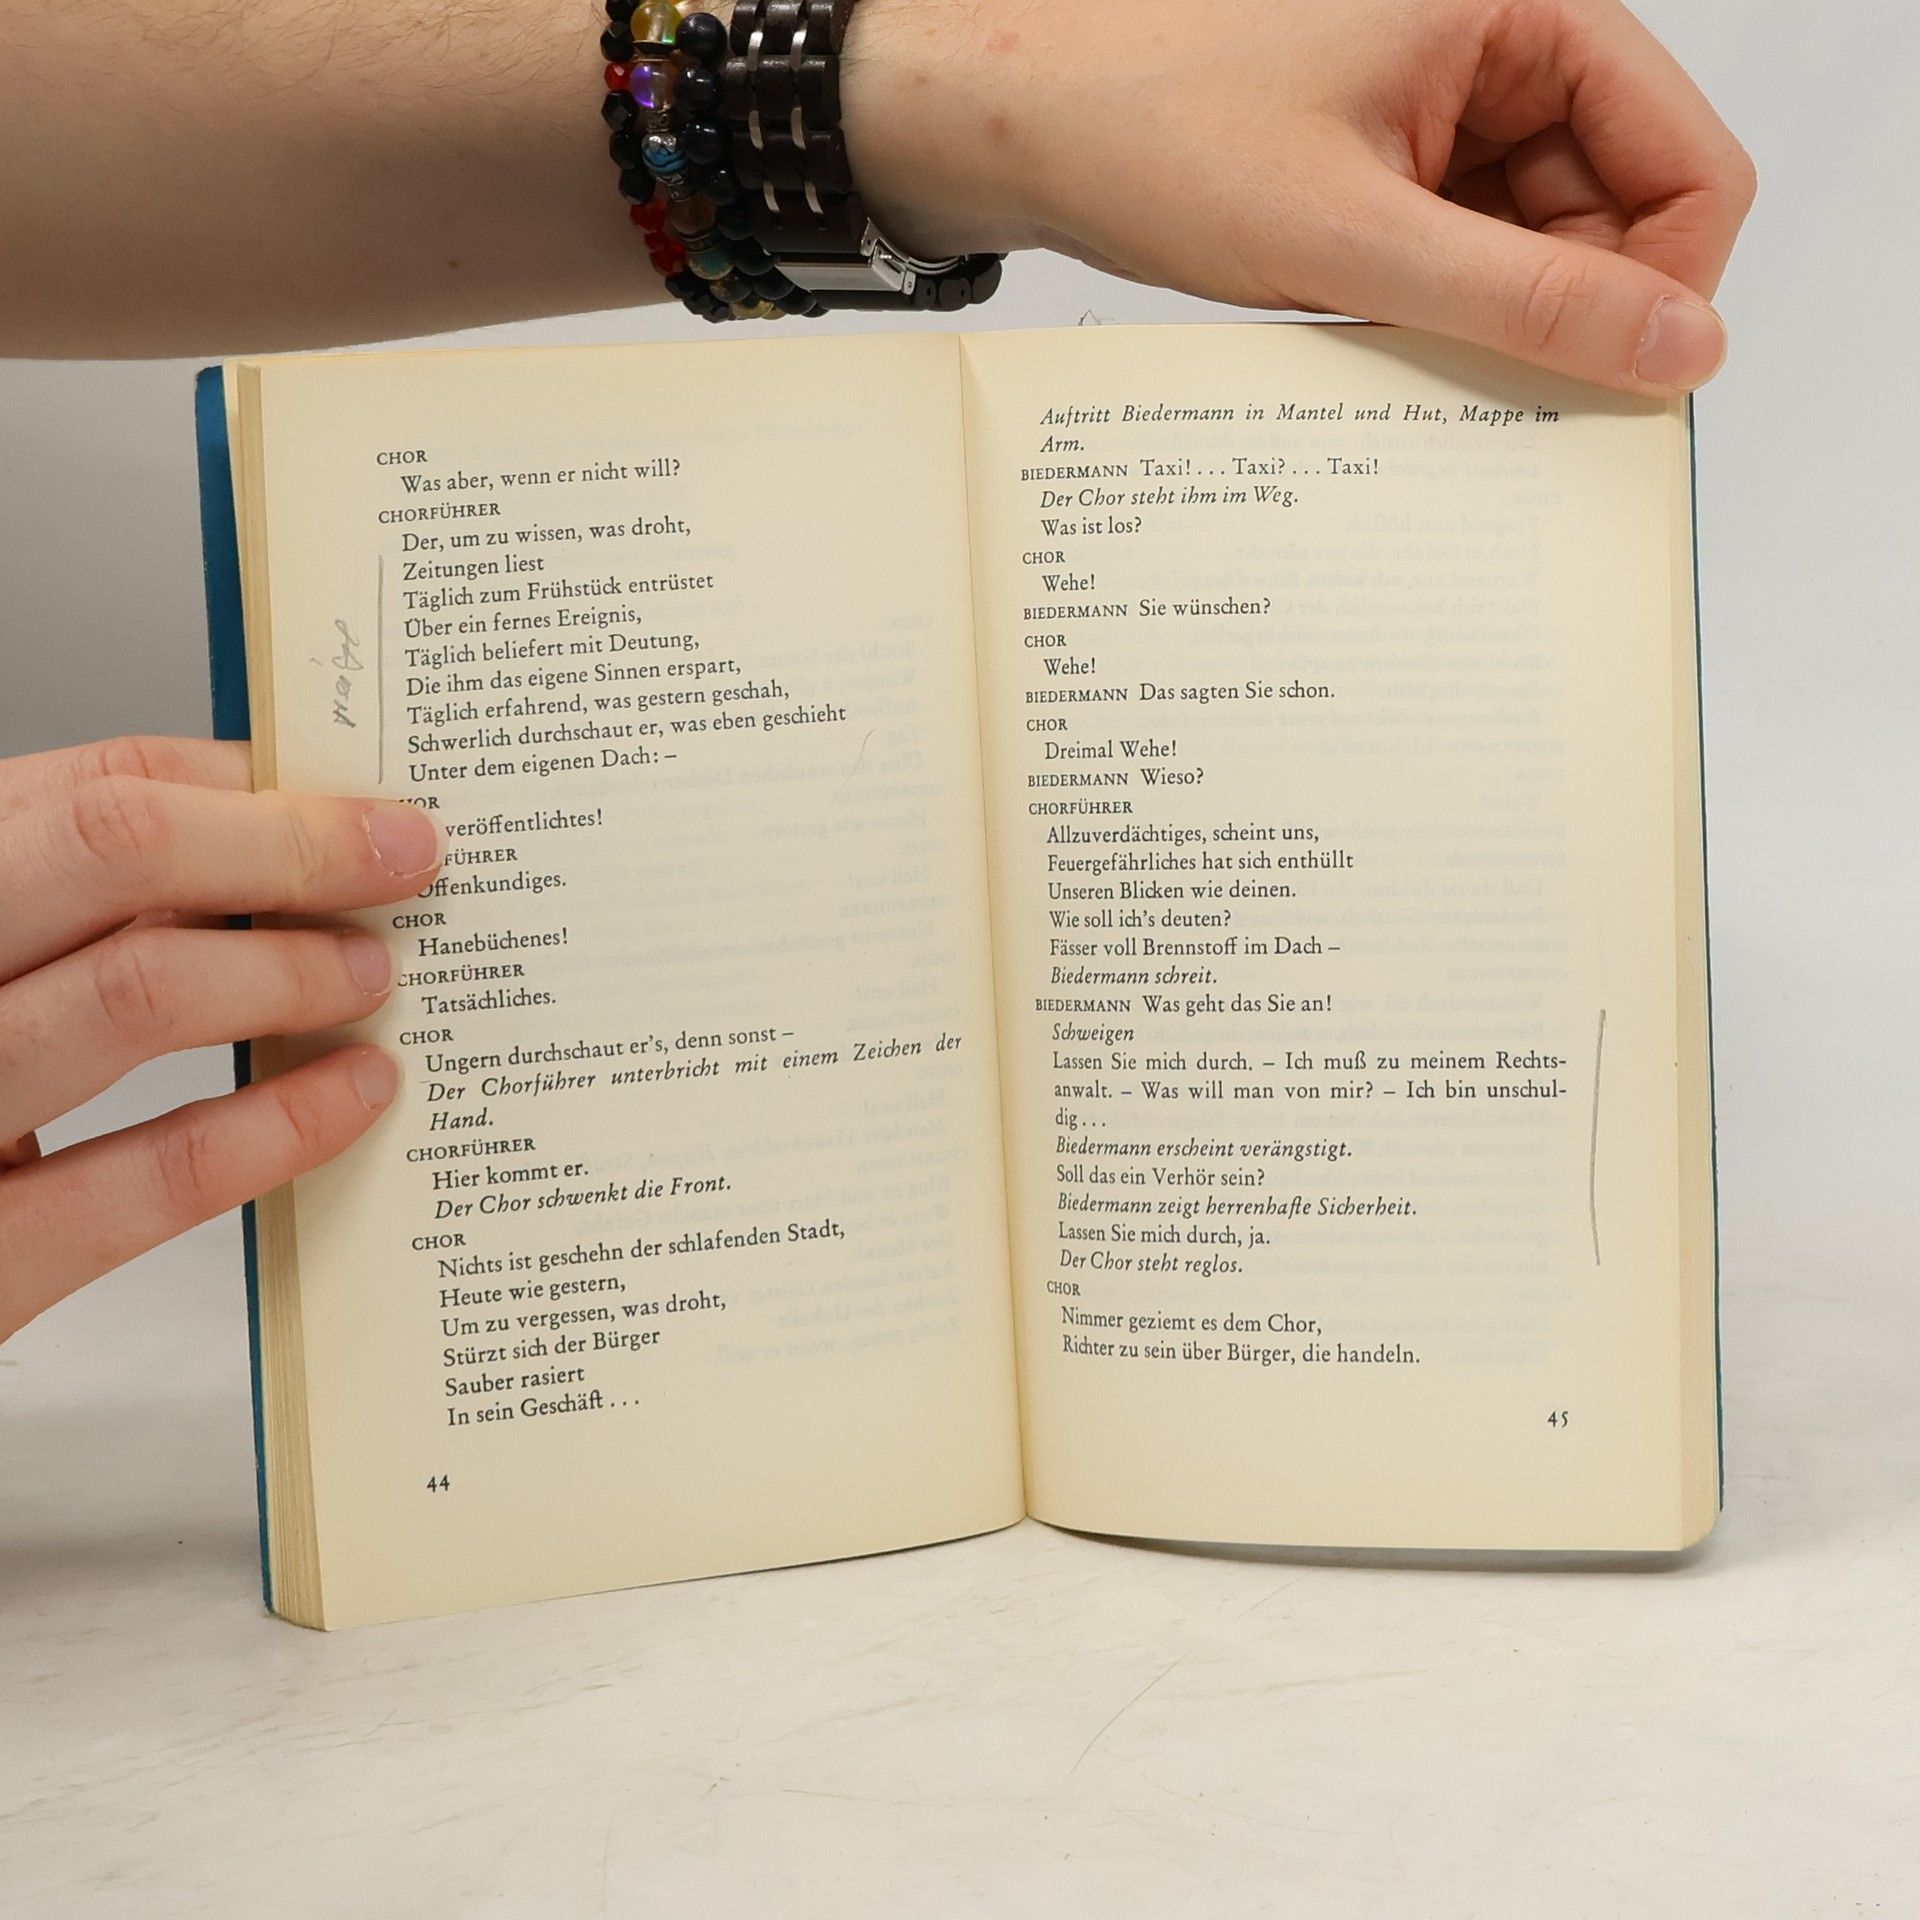 CHOR
Was aber, wenn er nicht will?
CHORFÜHRER
Der, um zu wissen, was droht,
Zeitungen liest
Täglich zum Frühstück entrüstet
Über ein fernes Ereignis,
Täglich beliefert mit Deutung,
Die ihm das eigene Sinnen erspart,
Täglich erfahrend, was gestern geschah,
Schwerlich durchschaut er, was eben geschieht
Unter dem eigenen Dach: –
veröffentlichtes!
Offenkundiges.
CHOR
Hanebüchenes!
CHORFÜHRER
Tatsächliches.
CHOR
Ungern durchschaut er's, denn sonst –
Der Chorführer unterbricht mit einem Zeichen der
Hand.
CHORFÜHRER
Hier kommt er.
Der Chor schwenkt die Front.
CHOR
Nichts ist geschehn der schlafenden Stadt,
Heute wie gestern,
Um zu vergessen, was droht,
Stürzt sich der Bürger
Sauber rasiert
In sein Geschäft . . .
44
Auftritt Biedermann in Mantel und Hut, Mappe im
Arm.
BIEDERMANN Taxi! . . . Taxi? . . . Taxi!
Der Chor steht ihm im Weg.
Was ist los?
CHOR
Wehe!
BIEDERMANN Sie wünschen?
CHOR
Wehe!
BIEDERMANN Das sagten Sie schon.
CHOR
Dreimal Wehe!
BIEDERMANN Wieso?
CHORFÜHRER
Allzuverdächtiges, scheint uns,
Feuergefährliches hat sich enthüllt
Unseren Blicken wie deinen.
Wie soll ich's deuten?
Fässer voll Brennstoff im Dach –
Biedermann schreit.
BIEDERMANN Was geht das Sie an!
Schweigen
Lassen Sie mich durch. – Ich muß zu meinem Rechts-
anwalt. – Was will man von mir? – Ich bin unschul-
dig . . .
Biedermann erscheint verängstigt.
Soll das ein Verhör sein?
Biedermann zeigt herrenhafte Sicherheit.
Lassen Sie mich durch, ja.
Der Chor steht reglos.
CHOR
Nimmer geziemt es dem Chor,
Richter zu sein über Bürger, die handeln.
45